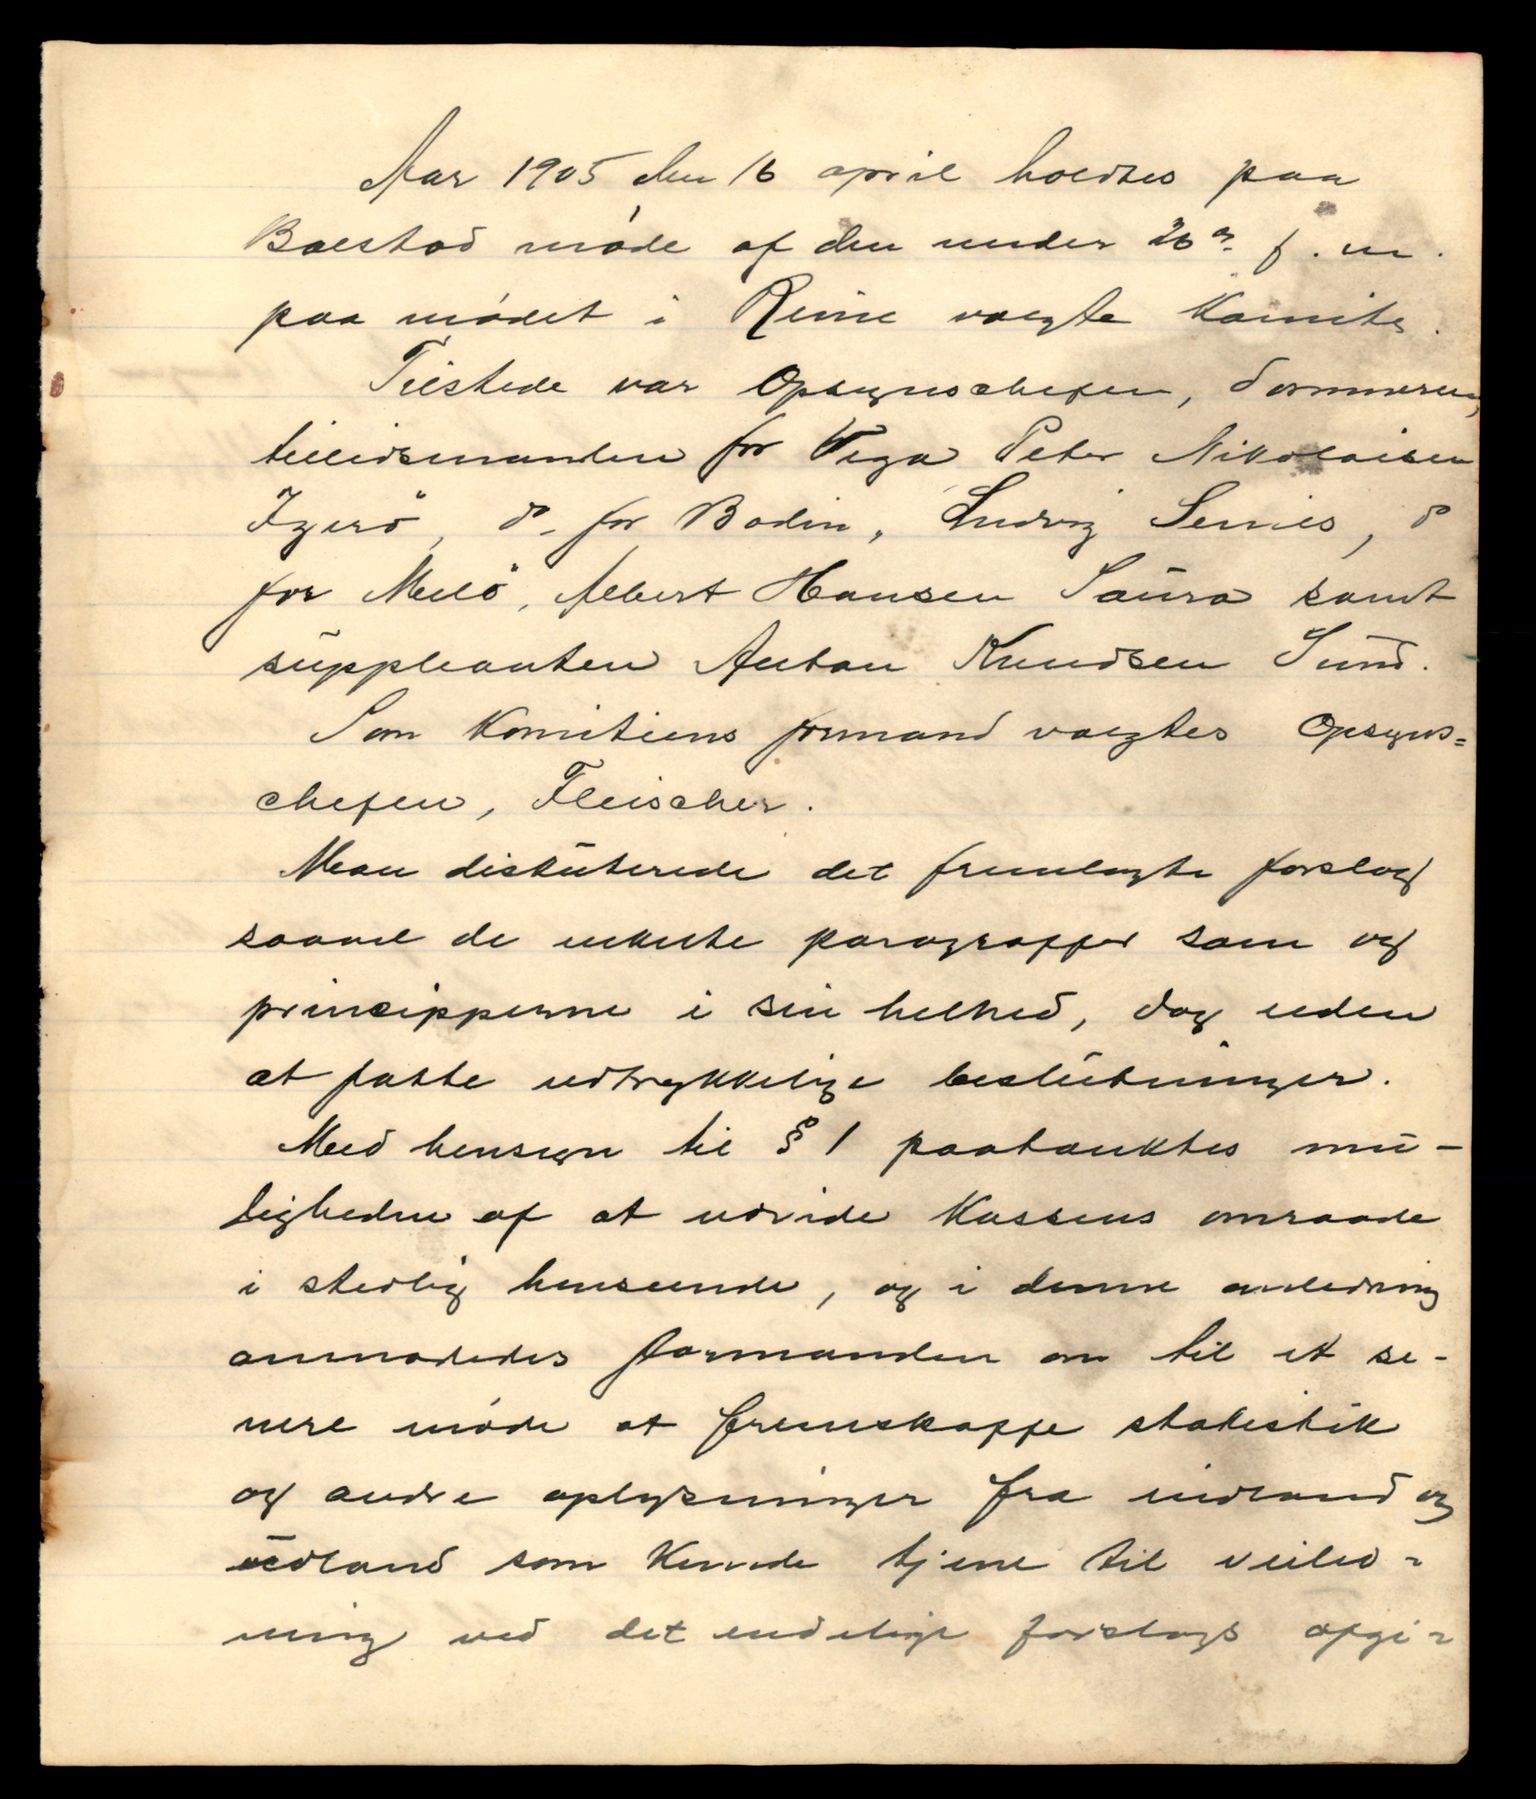 Aar 1905 den 16 april holdtes paa
Balstad møde af den under 26 f. m.
paa mødet i Reine valgte Komite.
Tilstede var Opsynschefen, dommeren,
tillidsmanden for Vega Peter Nikolaisen
Igerö, do for Bodin, Ludvig Seines, do
for Melö, Albert Hansen Saura samt
suppleanten Anton Knudsen Sund.
Som Komiteens formand valgtes Opsyns=
chefen, Fleischer.
Man diskuterede det fremlagte forslag
saavel de enkelte paragraffer som og
principperne i sin helhed, dog uden
at fatte udtrykkelige beslutninger.
Med hensyn til § 1 paatænktes mu-
ligheden af at udvide Kassens omraade
i stedlig henseende, og i denne anledning
anmodedes formanden om til et se-
nere møde at fremskaffe statistik
og andre oplysninger fra indland og
udland som kunde tjene til veiled=
ning ved det endelige forslags afgi=